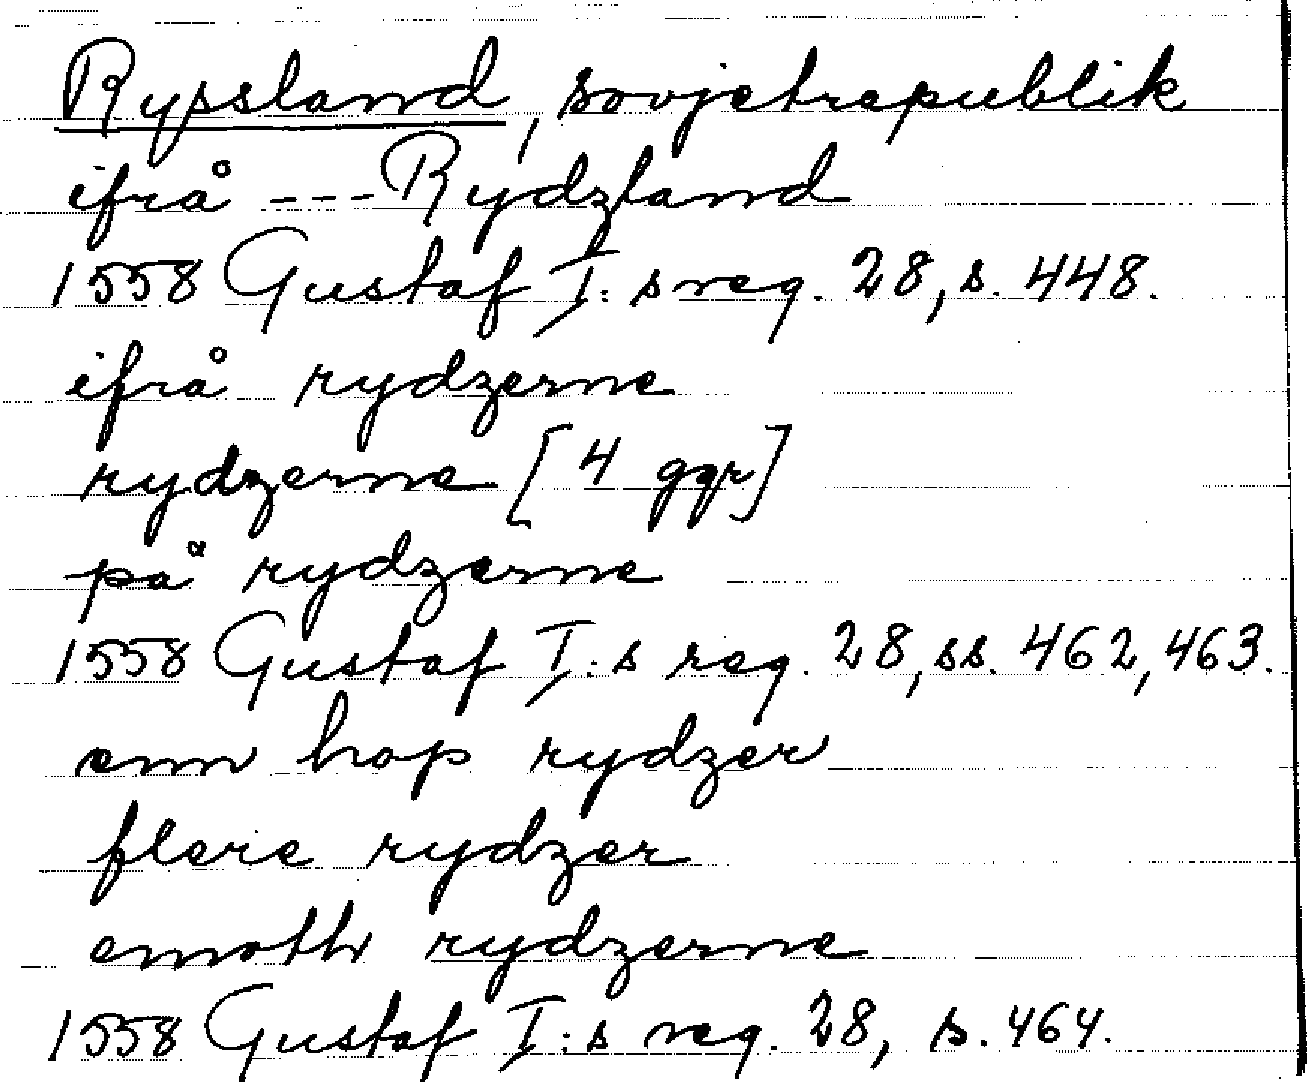 Ryssland, sovjetrepublik
ifrå --- Rydzland
1558 Gustaf I:s reg. 28, s. 448.
ifrå rydzerne
rydzerne [4 ggr]
på rydzerne
1558 Gustaf I:s reg. 28, ss. 462, 463.
enn hop rydzer
flere rydzer
emoth rydzerne
1558 Gustaf I:s reg. 28, s. 464.